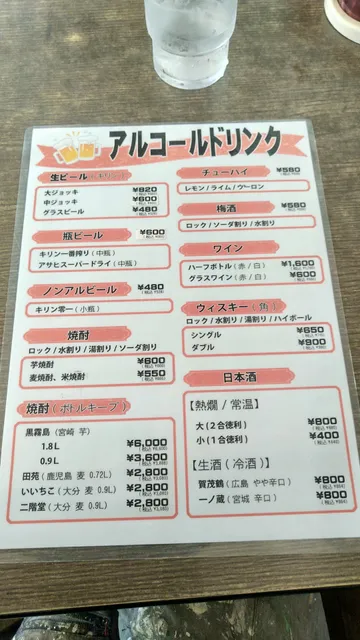 アルコールドリンク
生ビール（キリン）
大ジョッキ ¥820
中ジョッキ ¥600
グラスビール ¥480
瓶ビール ¥600
キリン一番搾り（中瓶）
アサヒスーパードライ（中瓶）
ノンアルビール ¥480
キリン零一（小瓶）
焼酎
ロック / 水割り / 湯割り / ソーダ割り
芋焼酎 ¥600
麦焼酎、米焼酎 ¥550
焼酎（ボトルキープ）
黒霧島（宮崎 芋）
1.8L ¥6,000
0.9L ¥3,600
田苑（鹿児島 麦 0.72L） ¥2,800
いいちこ（大分 麦 0.9L） ¥2,800
二階堂（大分 麦 0.9L） ¥2,800
チューハイ ¥580
レモン / ライム / ウーロン
梅酒 ¥580
ロック / ソーダ割り / 水割り
ワイン
ハーフボトル（赤 / 白） ¥1,600
グラスワイン（赤 / 白） ¥600
ウィスキー（角）
ロック / 水割り / 湯割り / ハイボール
シングル ¥650
ダブル ¥900
日本酒
【熱燗 / 常温】
大（2合徳利） ¥800
小（1合徳利） ¥400
【生酒（冷酒）】
賀茂鶴（広島 やや辛口） ¥800
一ノ蔵（宮城 辛口） ¥800